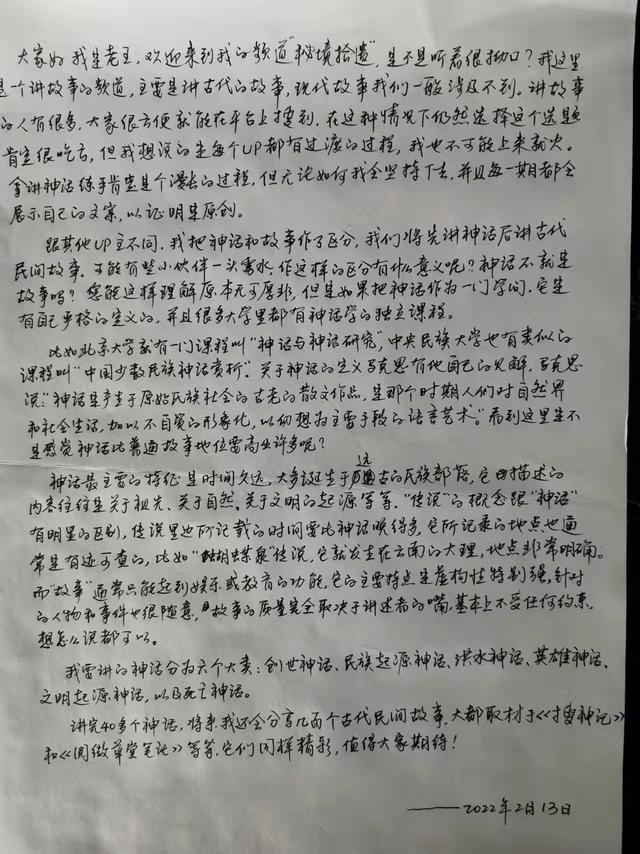 大家好 我是老王，欢迎来到我的频道"秘境拾遗"，是不是听着很拗口？我这里
是一个讲故事的频道，主要是讲古代的故事，现代故事我们一般涉及不到。讲故事
的人有很多，大家很方便就能在平台上搜到。在这种情况下仍然选择这个选题
肯定很吃亏，但我想说的是每个UP都有过渡的过程，我也不可能上来就火。
拿讲神话练手肯定是个漫长的过程，但无论如何我会坚持下去，并且每一期都会
展示自己的文案，以证明是原创。
跟其他UP主不同，我把神话和故事作了区分，我们将先讲神话后讲古代
民间故事。可能有些小伙伴一头雾水，作这样的区分有什么意义呢？神话不就是
故事吗？您能这样理解原本无可厚非，但是如果把神话作为一门学问，它是
有自己严格的定义的，并且很多大学里都有神话学的独立课程。
比如北京大学就有一门课程叫"神话与神话研究"，中央民族大学也有类似的
课程叫"中国少数民族神话赏析"。关于神话的定义马克思有他自己的见解，马克思
说："神话是产生于原始氏族社会的古老的散文作品，是那个时期人们对自然界
和社会生活，加以不自觉的形象化，以幻想为主要手段的语言艺术。"看到这里是不
是感觉神话比普通故事地位要高出许多呢？
神话最主要的特征是时间久远，大多诞生于远古的民族部落，它描述的
内容往往是关于祖先、关于自然、关于文明的起源等等。"传说"的概念跟"神话"
有明显的区别，传说里边所记载的时间要比神话晚得多，它所记录的地点也通
常是有迹可查的，比如"蝴蝶泉"传说，它就发生在云南的大理，地点非常明确。
而"故事"通常只能起到娱乐或教育的功能，它的主要特点是虚构性特别强，针对
的人物和事件也很随意，故事的质量完全取决于讲述者的嘴，基本上不受任何约束，
想怎么说都可以。
我要讲的神话分为六个大类：创世神话、民族起源神话、洪水神话、英雄神话、
文明起源神话，以及死亡神话。
讲完40多个神话，将来我还会分享几百个古代民间故事，大都取材于《搜神记》
和《阅微草堂笔记》等等，它们同样精彩，值得大家期待！
——2022年2月13日